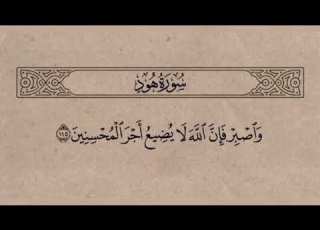 سُورَةُ هُودٍ
وَٱصۡبِرۡ فَإِنَّ ٱللَّهَ لَا يُضِيعُ أَجۡرَ ٱلۡمُحۡسِنِينَ ١١٥